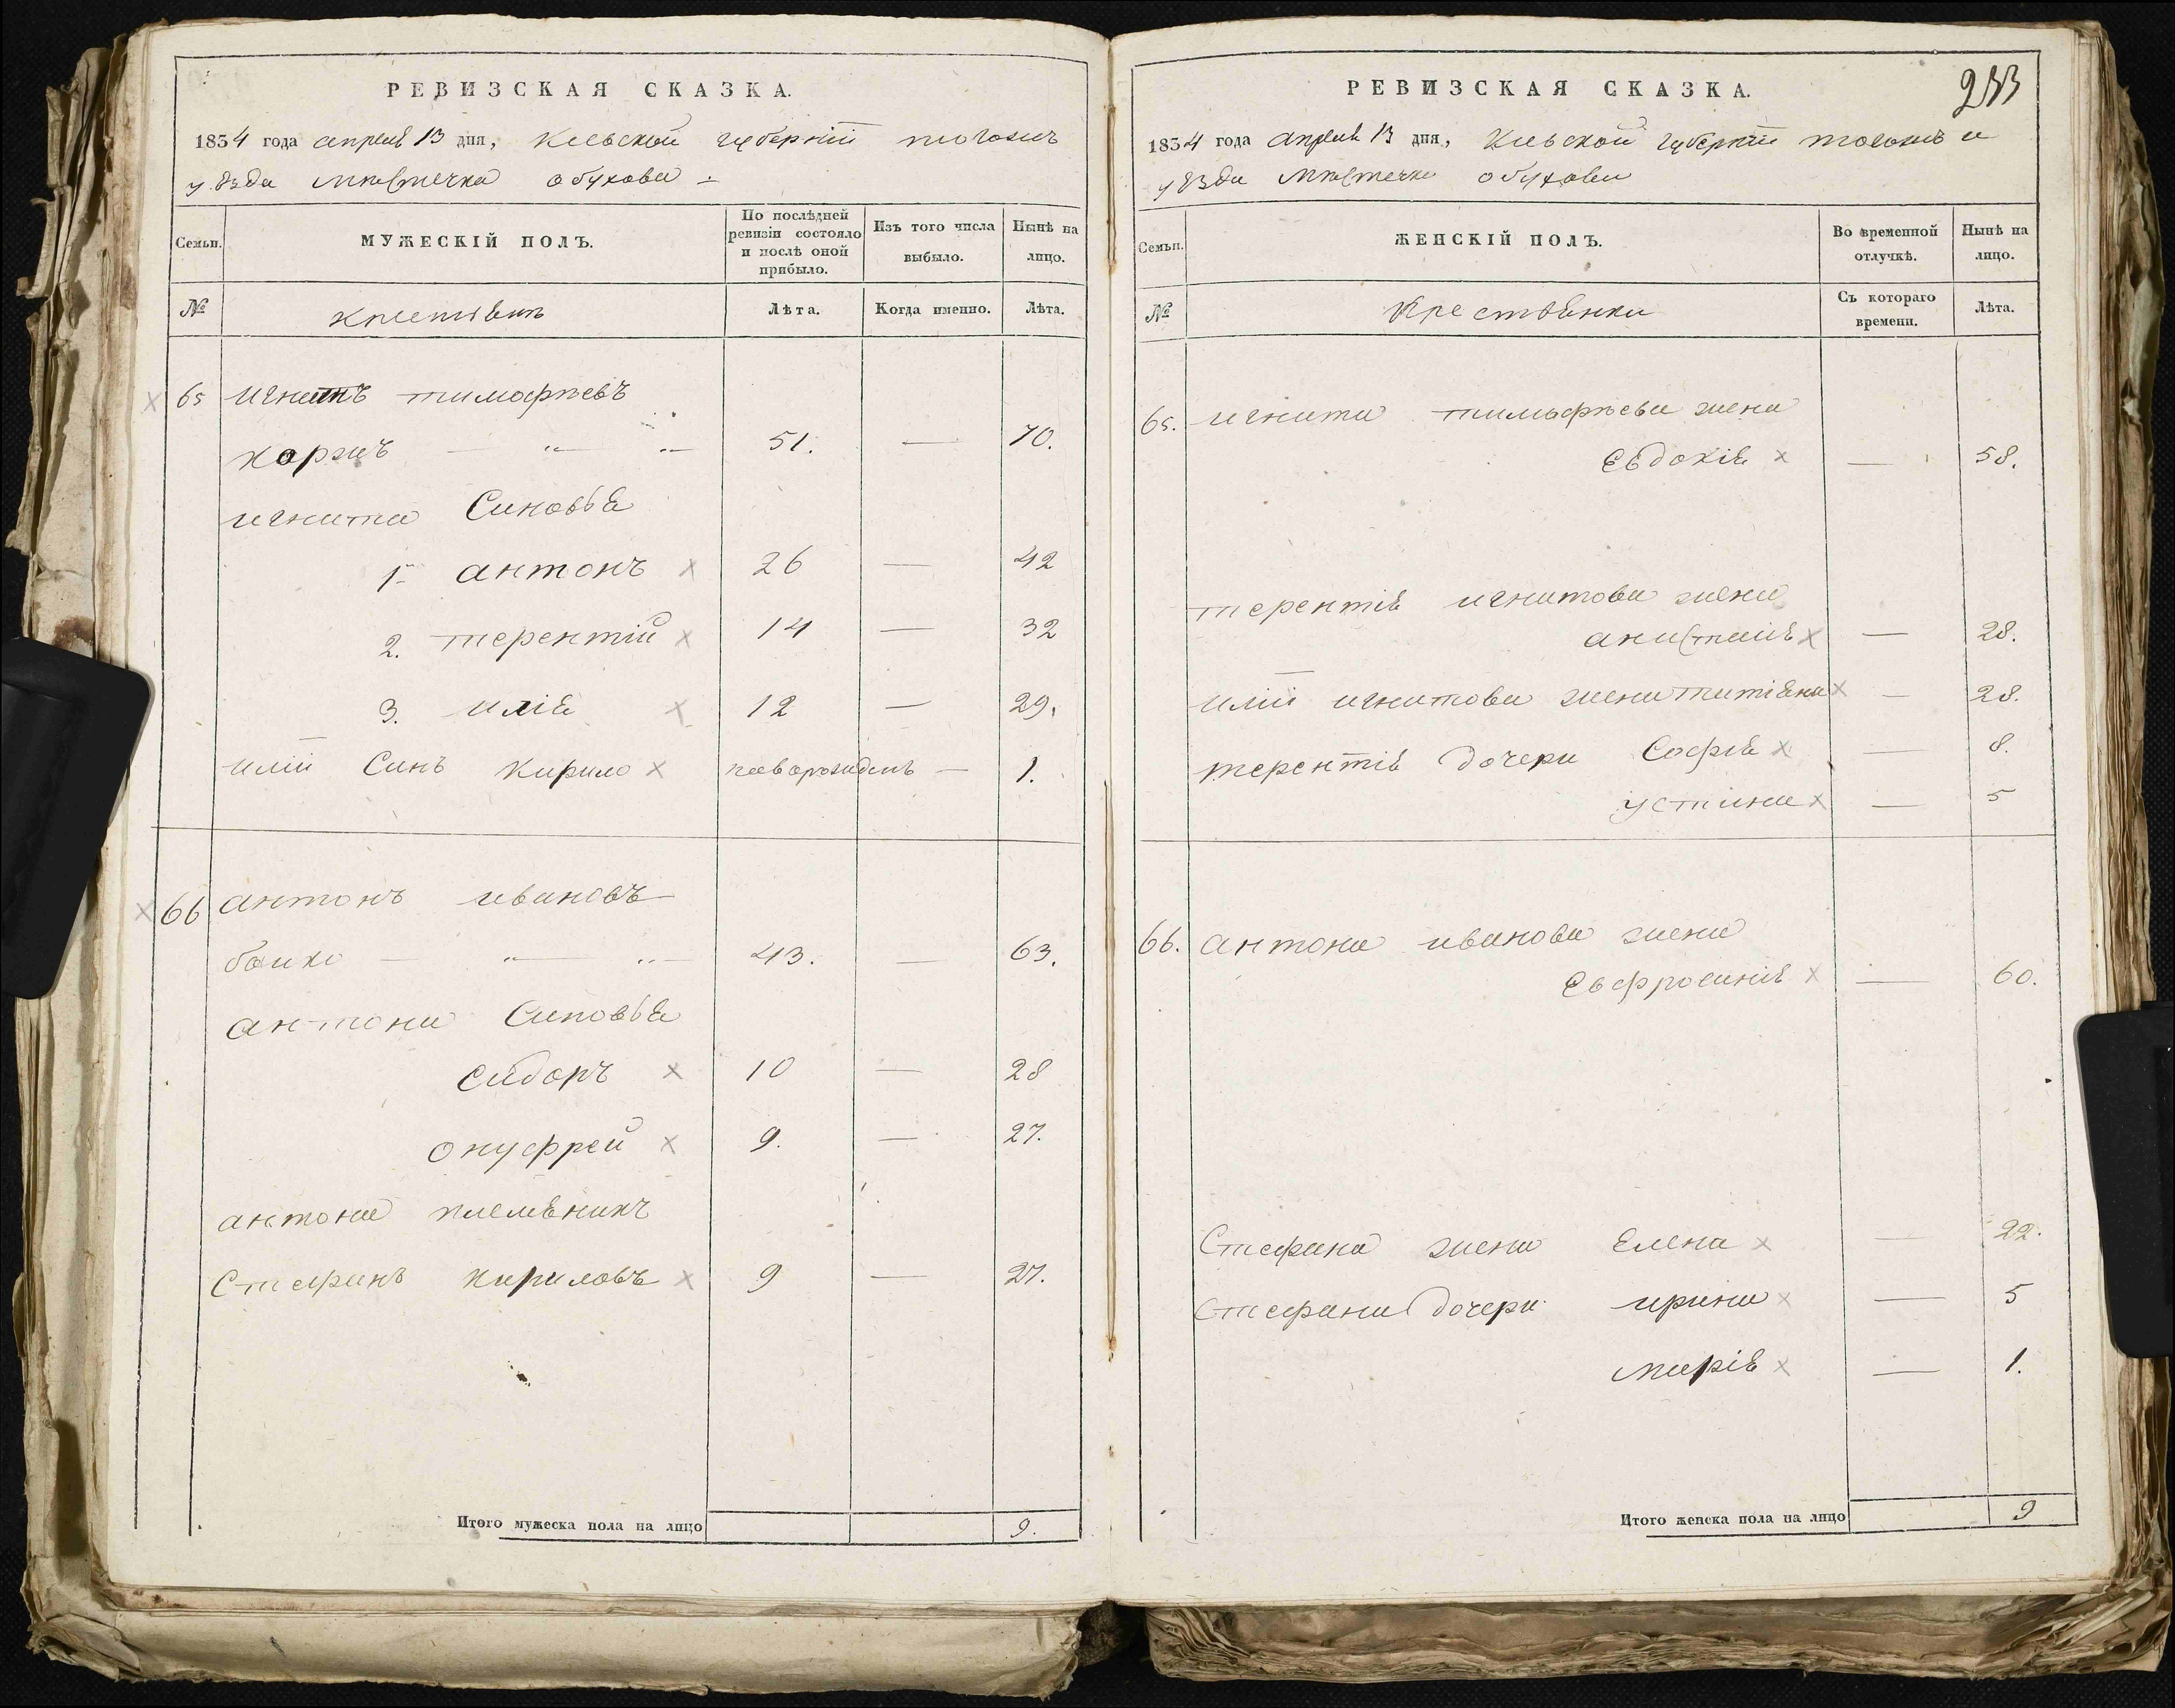 РЕВИЗСКАЯ СКАЗКА.
1834 года апреля 13 дня, Киевской губернии тогожъ
уѣзда Мѣстечка обухова
Семьи. МУЖЕСКІЙ ПОЛЪ. По послѣдней ревизіи состояло и послѣ оной прибыло. Изъ того числа выбыло. Нынѣ на лицо.
№ Лѣта. Когда именно. Лѣта.
65 игнатъ тимофѣевъ
коржъ — 51. — 70.
игната Синовья
1. антонъ х 26 — 42
2. терентій х 14 — 32
3. илія х 12 — 29.
иліи Синъ Кирило х новорожденъ — 1.
х 66 антонъ ивановъ
бойко — 43. — 63.
антона Синовья
Сидоръ х 10 — 28
онуфрей х 9. — 27.
антона племяникъ
Стефанъ кириловъ х 9 — 27.
Итого мужеска пола на лицо 9.
233
РЕВИЗСКАЯ СКАЗКА.
1834 года апреля 13 дня, Киевской губерніи тогожъ
уѣзда Мѣстечка обухова
Семьи. ЖЕНСКІЙ ПОЛЪ. Во временной отлучкѣ. Нынѣ на лицо.
№ Крестьянки Съ котораго времени. Лѣта.
65. игната тимофѣева жена
Евдокія х — 58.
терентія игнатова жена
анастасія х — 28.
иліи игнатова жена татіяна х — 28.
терентія дочери Софія х — 8.
устина х — 5
66. антона иванова жена
Евфросинія х — 60.
Стефана жена Елена х — 22.
Стефана дочери ирина х — 5
марія х — 1.
Итого женска пола на лицо 9